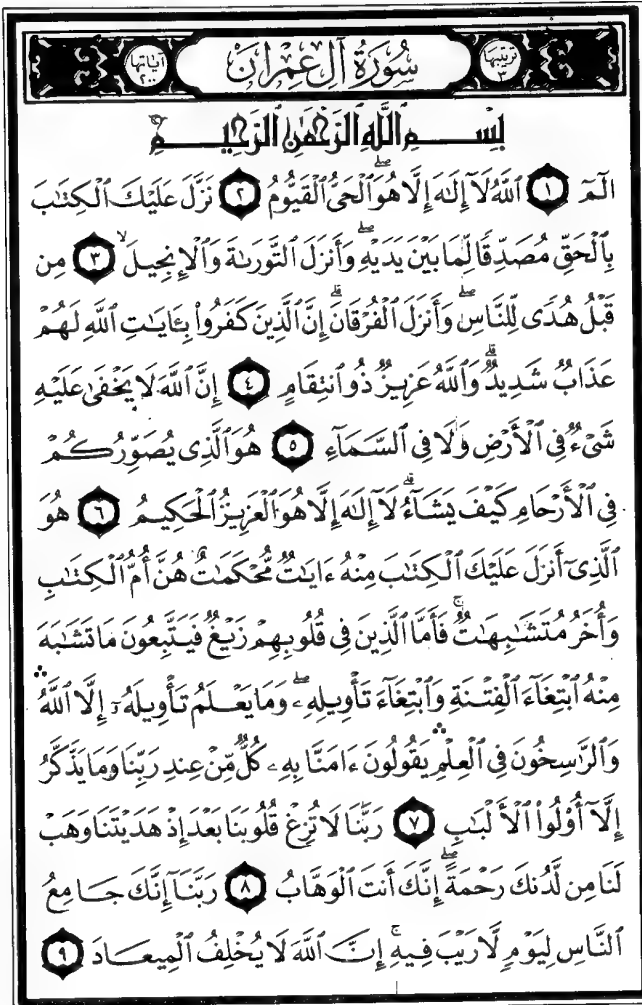 ترتيبها ٣ سُورَةُ آلِ عِمْرَانَ آياتها ٢٠٠
بِسْمِ ٱللَّهِ ٱلرَّحْمَٰنِ ٱلرَّحِيمِ
الٓمٓ ١ ٱللَّهُ لَآ إِلَٰهَ إِلَّا هُوَ ٱلْحَىُّ ٱلْقَيُّومُ ٢ نَزَّلَ عَلَيْكَ ٱلْكِتَٰبَ
بِٱلْحَقِّ مُصَدِّقًا لِّمَا بَيْنَ يَدَيْهِۖ وَأَنزَلَ ٱلتَّوْرَىٰةَ وَٱلْإِنجِيلَۙ ٣ مِن
قَبْلُ هُدًى لِّلنَّاسِۖ وَأَنزَلَ ٱلْفُرْقَانَۗ إِنَّ ٱلَّذِينَ كَفَرُوا۟ بِـَٔايَٰتِ ٱللَّهِ لَهُمْ
عَذَابٌ شَدِيدٌۗ وَٱللَّهُ عَزِيزٌ ذُو ٱنتِقَامٍ ٤ إِنَّ ٱللَّهَ لَا يَخْفَىٰ عَلَيْهِ
شَىْءٌ فِى ٱلْأَرْضِ وَلَا فِى ٱلسَّمَآءِ ٥ هُوَ ٱلَّذِى يُصَوِّرُكُمْ
فِى ٱلْأَرْحَامِ كَيْفَ يَشَآءُۗ لَآ إِلَٰهَ إِلَّا هُوَ ٱلْعَزِيزُ ٱلْحَكِيمُ ٦ هُوَ
ٱلَّذِىٓ أَنزَلَ عَلَيْكَ ٱلْكِتَٰبَ مِنْهُ ءَايَٰتٌ مُّحْكَمَٰتٌ هُنَّ أُمُّ ٱلْكِتَٰبِ
وَأُخَرُ مُتَشَٰبِهَٰتٌۚ فَأَمَّا ٱلَّذِينَ فِى قُلُوبِهِمْ زَيْغٌ فَيَتَّبِعُونَ مَا تَشَٰبَهَ
مِنْهُ ٱبْتِغَآءَ ٱلْفِتْنَةِ وَٱبْتِغَآءَ تَأْوِيلِهِۦۖ وَمَا يَعْلَمُ تَأْوِيلَهُۥٓ إِلَّا ٱللَّهُۛ
وَٱلرَّٰسِخُونَ فِى ٱلْعِلْمِۛ يَقُولُونَ ءَامَنَّا بِهِۦ كُلٌّ مِّنْ عِندِ رَبِّنَا وَمَا يَذَّكَّرُ
إِلَّآ أُو۟لُوا۟ ٱلْأَلْبَٰبِ ٧ رَبَّنَا لَا تُزِغْ قُلُوبَنَا بَعْدَ إِذْ هَدَيْتَنَا وَهَبْ
لَنَا مِن لَّدُنكَ رَحْمَةًۖ إِنَّكَ أَنتَ ٱلْوَهَّابُ ٨ رَبَّنَآ إِنَّكَ جَامِعُ
ٱلنَّاسِ لِيَوْمٍ لَّا رَيْبَ فِيهِۚ إِنَّ ٱللَّهَ لَا يُخْلِفُ ٱلْمِيعَادَ ٩